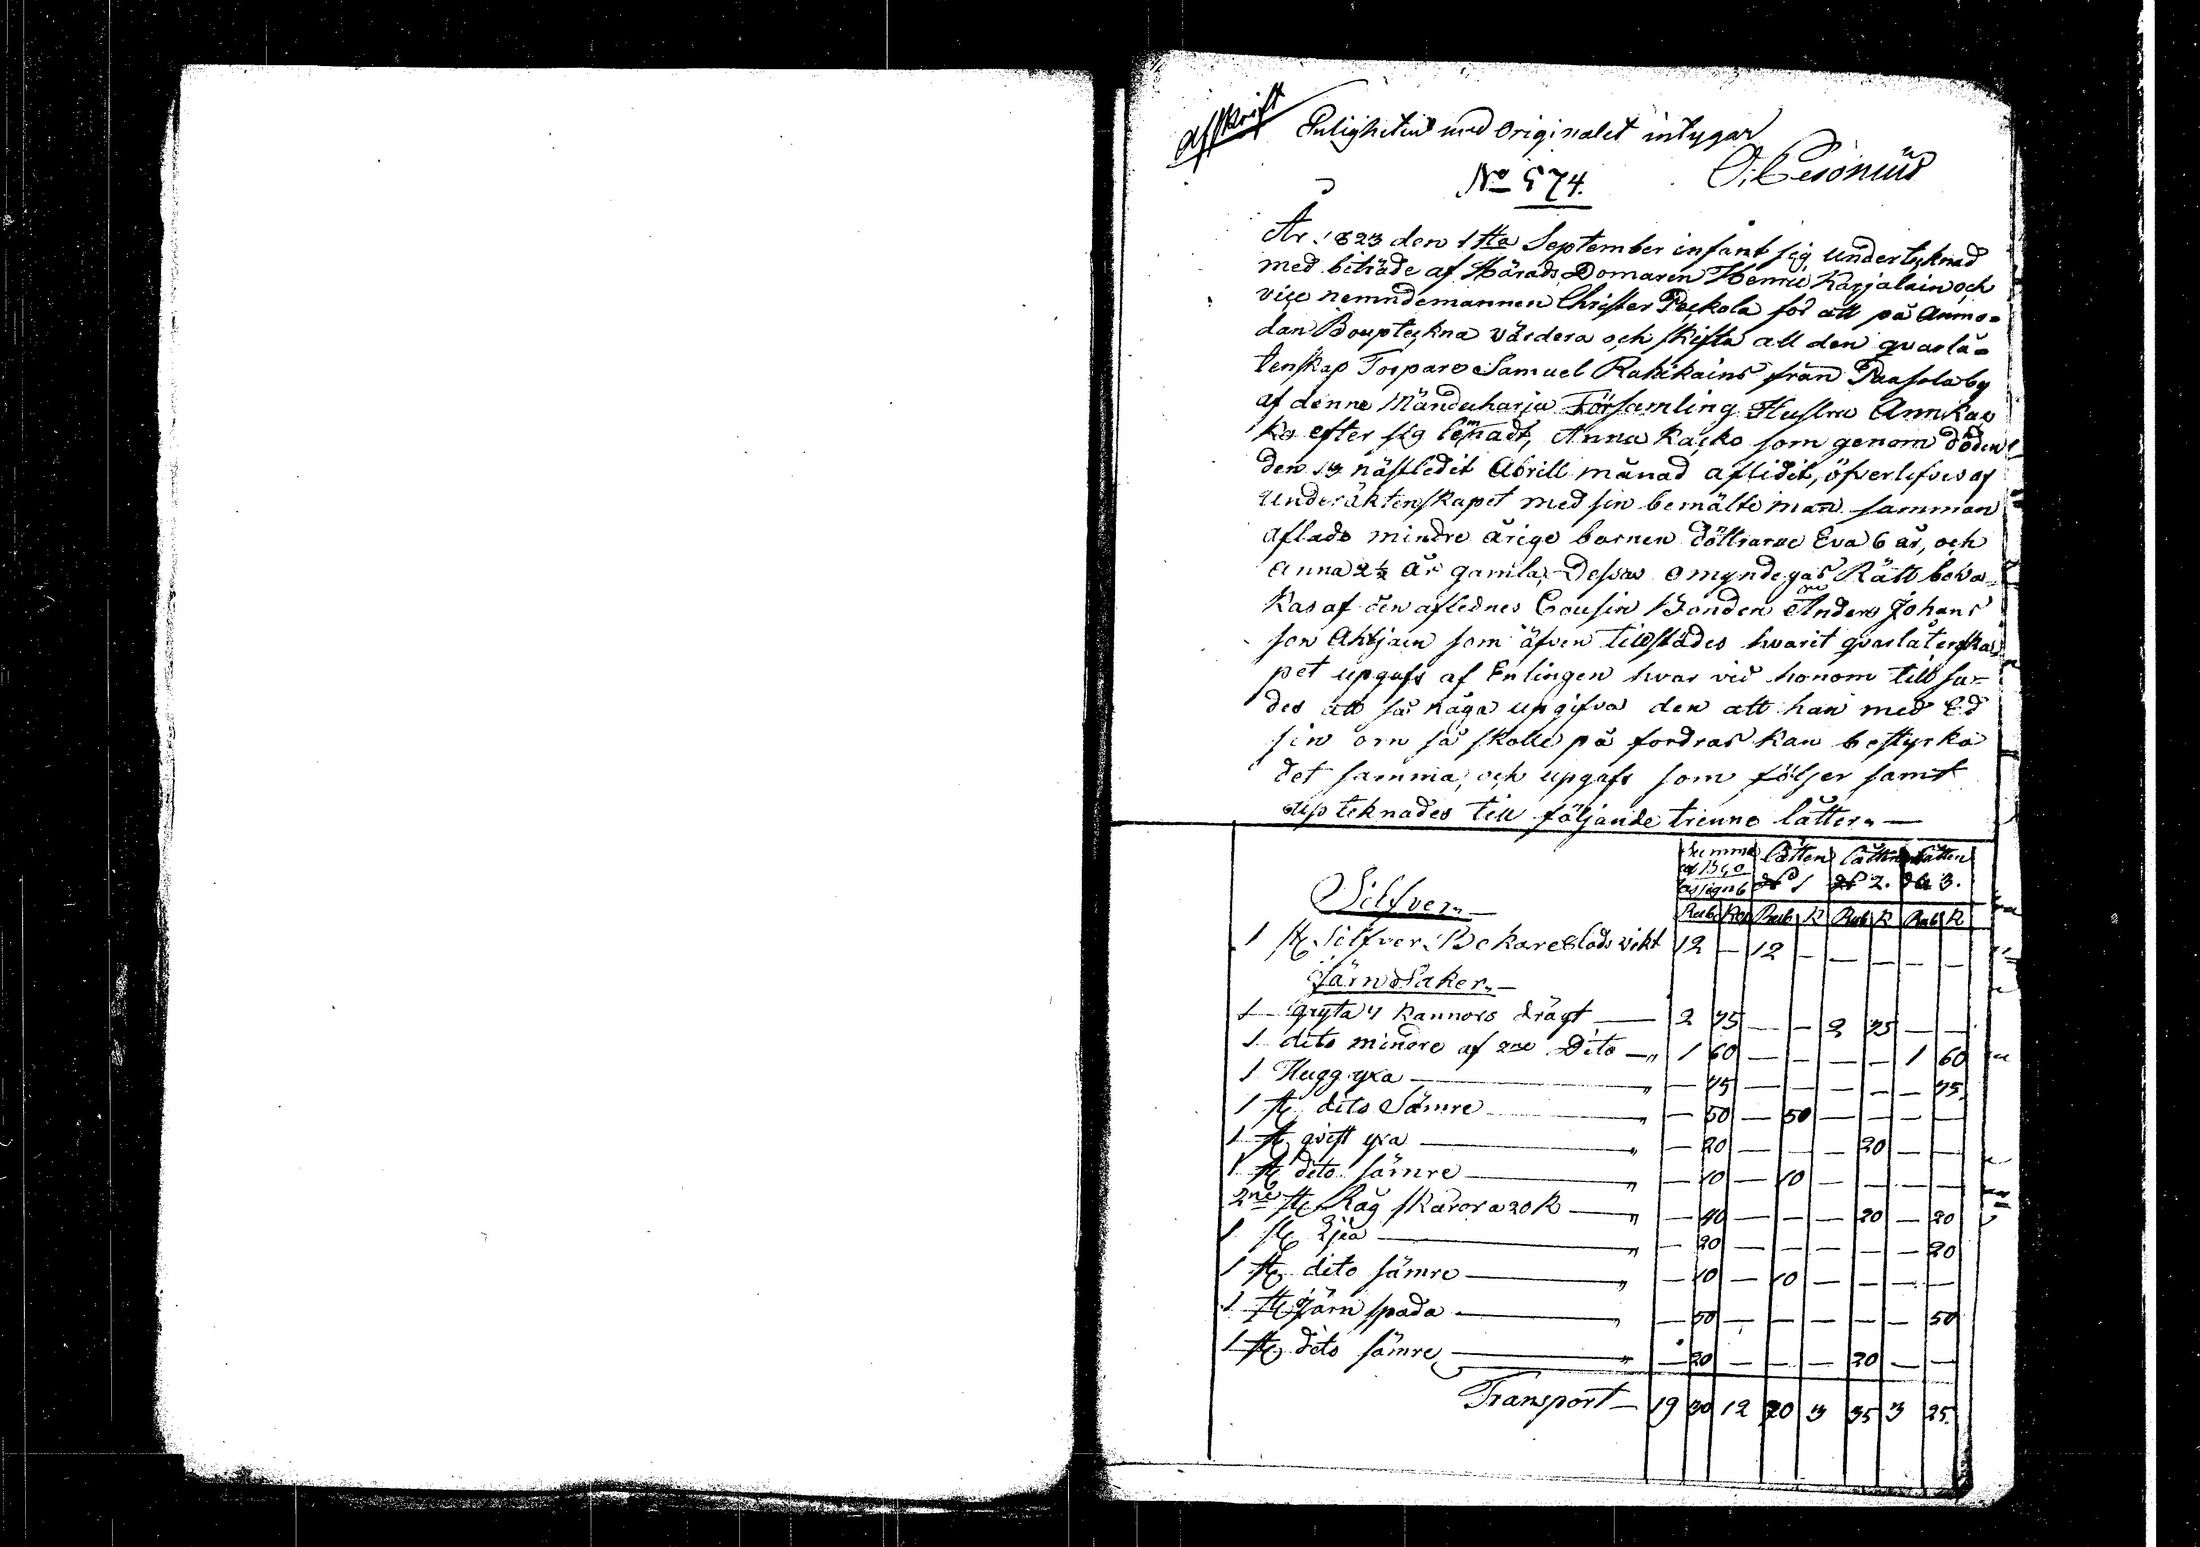 Afskrift
Enligheten med Originalet intygar
O. Cesonius
No 574.
År 1823 den 1sta September infant sig underteknad
med biträde af Härads Domaren Henric Karjalain och
vise nemndemannen Christer Peckola för att på Anmo=
dan Bouptekna värdera och skifta all den qvarlå=
tenskap Torpare Samuel Rahikains från Paasola by
af denne Mänduharju Församling Hustru Ann Kas
ko efter sig lemnadt, Anna Kasko som genom döden
den 13 nästledit Abrill månad aflidit, öfverlefves af
under äktenskapet med sin bemälte man samman
aflade mindre årige barnen döttrarne Eva 6 år, och
Anna 2½ år gamla, Dessas omyndegas Rätt beva=
kas af den aflednes Cousin Bonden Anders Johans
son Ahtjain som äfven tillstädes hvarit qvarlåtenska
pet upgafs af Enlingen hvar vid honom till sa=
des att så noga upgifva den att han med Ed
sin om så skulle på fordras kan bestyrka
det samma, och upgafs som följer samt
upteknades till följande trenne låtter. —
Summa af Bco assignt | Låtten No 1 | Låtten No 2. | Låtten No 3.
Silfver. —
Rub Kop Rub K Rub K Rub K
1 st Silfver Bekare 8 lods vikt 12 — 12 — — — — —
Järn Saker. —
1 gryta 4 kannors drägt — 2 75 — — 2 75 — —
1 dito mindre af 2ne Dito — " 1 60 — — — — 1 60
1 Hugg yxa — " — 75 — — — — — 75
1 st dito Sämre — " — 50 — 50 — — — —
1 st qvist yxa — " — 20 — — — 20 — —
1 st dito sämre — " — 10 — 10 — — — —
2ne st Råg skäror a 20 K — " — 40 — — — 20 — 20
1 st Ljea — " — 20 — — — — — 20
1 st dito sämre — " — 10 — 10 — — — —
1 st Järn spada — " — 50 — — — — — 50
1 st dito sämre — " — 20 — — — 20 — —
Transport — 19 30 12 70 3 35 3 25.